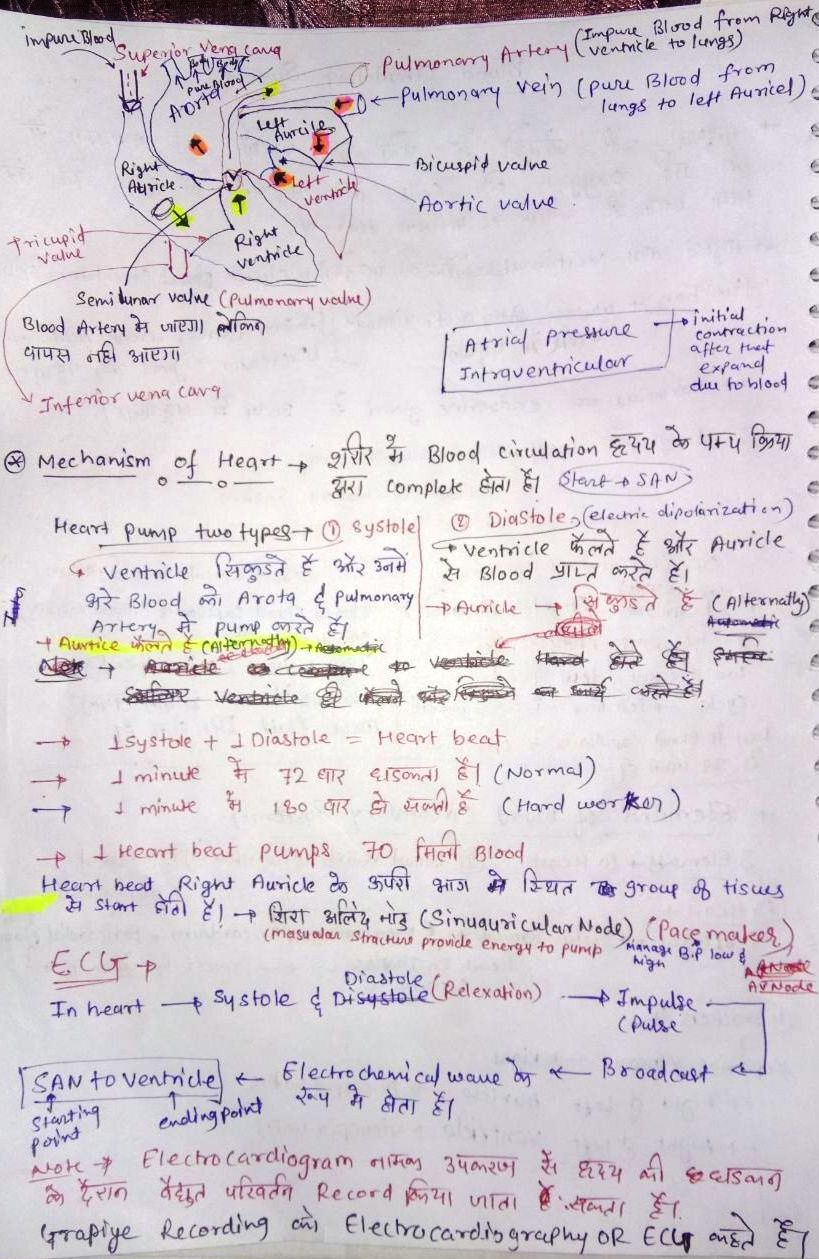 impure Blood
Superior Vena cava
Pulmonary Artery (Impure Blood from Right
ventricle to lungs)
Pulmonary vein (pure Blood from
lungs to left Auricel)
Body Body
pure Blood
Aorta
Left
Auricle
Right
Auricle
Left
ventricle
Bicuspid valve
Aortic valve
Tricupid
valve
Right
ventricle
Semilunar valve (Pulmonary valve)
Blood Artery मे जाएगा लेकिन
वापस नही आएगा
Inferior vena cava
Atrial pressure
Intraventricular
initial
contraction
after that
expand
due to blood
Mechanism of Heart → शरीर में Blood circulation हृदय के पम्प क्रिया
द्वारा complete होता है। Start → SAN
Heart pump two types → ① Systole
② Diastole (electric dipolarization)
ventricle सिकुडते है और उनमें
भरे Blood को Arota & pulmonary
Artery में pump करते है।
→ Aurtice फैलते है (Alternathy) → Automatic
ventricle फैलते है और Auricle
से Blood प्राप्त करते है।
→ Auricle → सिकुडते है (Alternathy)
Automatic
→ 1 Systole + 1 Diastole = Heart beat
→ 1 minute में 72 बार धडकता है। (Normal)
→ 1 minute में 180 बार हो सकती है (Hard worker)
→ 1 Heart beat pumps 70 मिली Blood
Heart beat Right Auricle के ऊपरी भाग मे स्थित group of tisues
से start होती है। → शिरा अलिंद नोड (Sinuauricular Node) (Pace maker)
(masualar Structure provide energy to pump
manage B.P low &
high
AV Node
ECG →
In heart → Systole & Disystole (Relexation) → Impulse
Diastole
(Pulse
SAN to ventricle ← Electrochemical wave के ← Broadcast
रूप मे होता है।
Starting
point
ending point
Note → Electrocardiogram नामक उपकरण से हृदय की धडकन
के दौरान वैद्युत परिवर्तन Record किया जाता है. सकता है।
Grapiye Recording को Electrocardiography OR ECG कहते है।